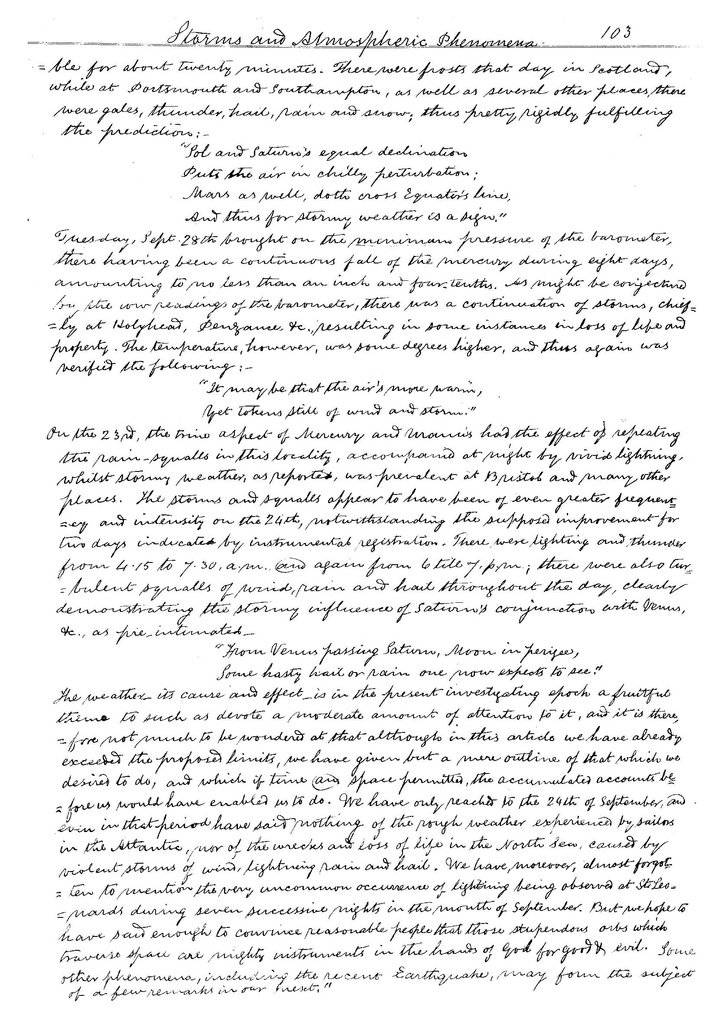 Storms and Atmospheric Phenomena. 103
=ble for about twenty minutes. There were frosts that day in Scotland,
while at Portsmouth and Southampton, as well as several other places, there
were gales, thunder, hail, rain and snow; thus pretty rigidly fulfilling
the prediction:-
"Sol and Saturn's equal declination
Puts the air in chilly perturbation;
Mars as well, doth cross Equator's line,
And thus for stormy weather is a sign."
Tuesday, Sept. 28th brought on the minimum pressure of the barometer,
there having been a continuous fall of the mercury during eight days,
amounting to no less than an inch and four-tenths. As might be conjectured
by the low readings of the barometer, there was a continuation of storms, chief=
=ly at Holyhead, Penzance &c., resulting in some instances in loss of life and
property. The temperature, however, was some degrees higher, and thus again was
verified the following:-
"It may be that the air's more warm,
Yet tokens still of wind and storm."
On the 23rd, the trine aspect of Mercury and Uranus had the effect of repeating
the rain-squalls in this locality, accompanied at night by vivid lightning,
whilst stormy weather, as reported, was prevalent at Bristol and many other
places. The storms and squalls appear to have been of even greater frequen=
=cy and intensity on the 24th, notwithstanding the supposed improvement for
two days indicated by instrumental registration. There were lighting and thunder
from 4.15 to 7.30, a.m. and again from 6 till 7, p.m.; there were also tur=
=bulent squalls of wind, rain and hail throughout the day, clearly
demonstrating the stormy influence of Saturn's conjunction with Venus,
&c., as pre-intimated-
"From Venus passing Saturn, Moon in perigee,
Some hasty hail or rain one now expects to see."
The weather-its cause and effect-is in the present investigating epoch a fruitful
theme to such as devote a moderate amount of attention to it, and it is there,
=fore not much to be wondered at that although in this article we have already
exceeded the proposed limits, we have given but a mere outline of that which we
desired to do, and which if time and space permitted, the accumulated accounts be
=fore us would have enabled us to do. We have only reached to the 24th of September, and
even in that period have said nothing of the rough weather experienced by sailors
in the Atlantic, nor of the wrecks and loss of life in the North Sea, caused by
violent storms of wind, lightning rain and hail. We have, moreover, almost forgot
=ten to mention the very uncommon occurrence of lighting being observed at St Leo=
=nards during seven successive nights in the month of September. But we hope to
have said enough to convince reasonable people that those stupendous orbs which
traverse space are mighty instruments in the hands of God for good & evil. Some
other phenomena, including the recent Earthquake, may form the subject
of a few remarks in our next."